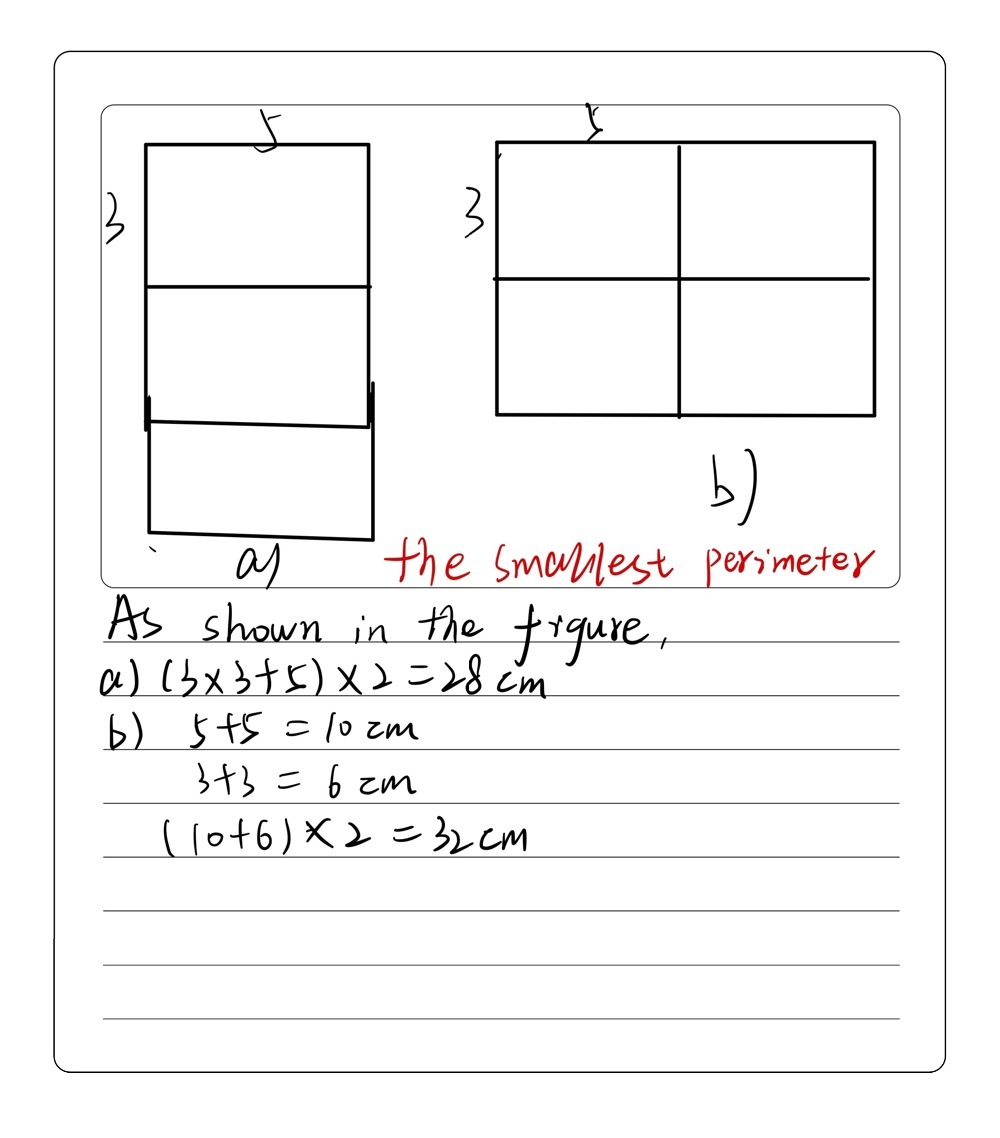 5
5
3
3
b)
a)
the smallest perimeter
As shown in the frgure,
a) (3×3+5)×2=28cm
b) 5+5=10cm
3+3=6cm
(10+6)×2=32cm